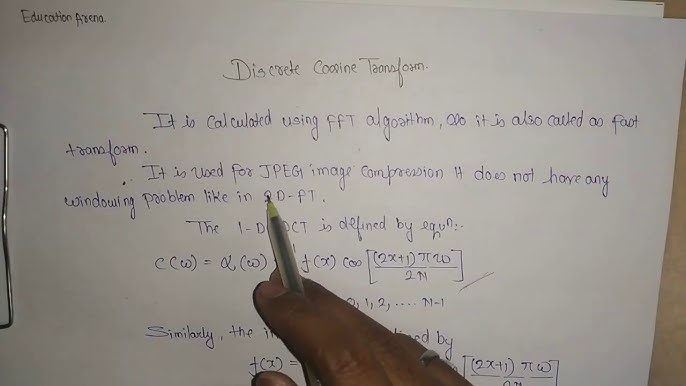 Education Arena.
Discrete Cosine Transform.
It is calculated using FFT algorithm, so it is also called as fast
transform.
It is used for JPEG image compression It does not have any
windowing problem like in 2D-FT.
The 1-D DCT is defined by equn:-
C(ω) = α(ω) f(x) cos [(2x+1)πω / 2N]
0, 1, 2, .... N-1
Similarly, the in by
f(x) = [(2x+1)πω / 2N]